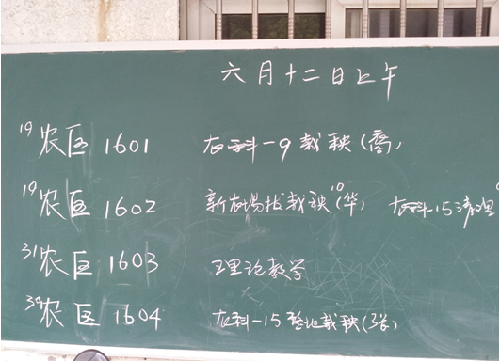 六月十二日上午
19农区1601 农科-9栽秧(乔)
19农区1602 新农场拔栽秧10(华) 农科-15清
31农区1603 理论教学
39农区1604 农科-15整地栽秧(张)